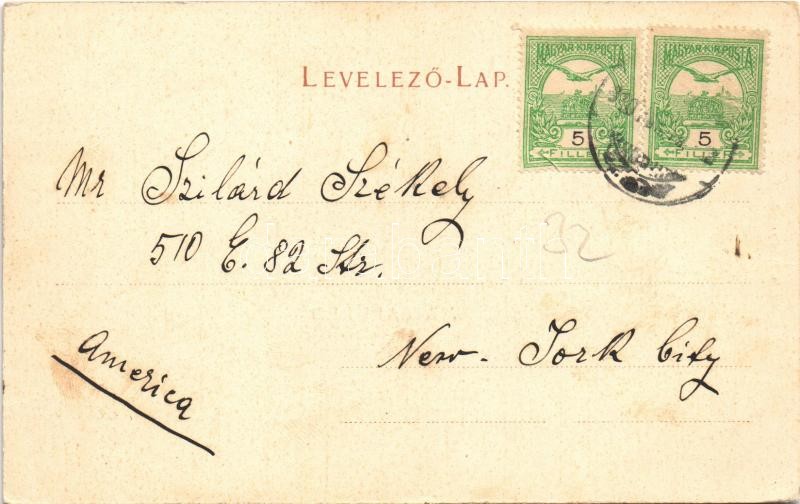 MAGYAR·KIR·POSTA MAGYAR·KIR·POSTA
LEVELEZŐ-LAP.
5 5
FILLÉR FILLÉR
Mr Szilárd Székely
510 E. 82 Str.
32
New-York City
America